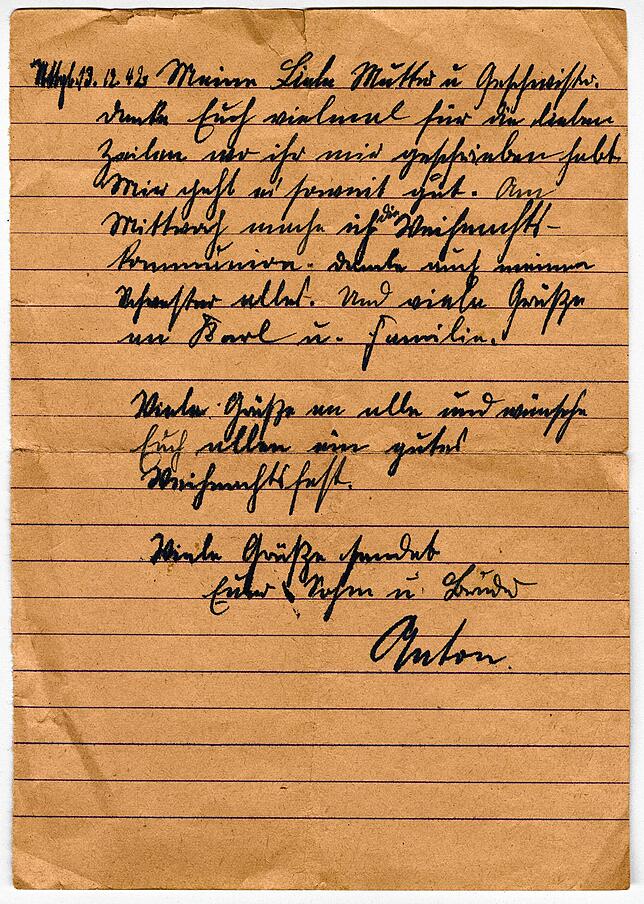 13. 12. 42 Meine Liebe Mutter u Geschwister.
danke Euch vielmal für die lieben
Zeilen wo ihr mir geschrieben habt
Mir geht es soweit gut. Am
Mittwoch mache ich die Weihnachts-
kommunion. danke auch meiner
Schwester alles. Und viele Grüße
an Karl u. Familie.
Viele Grüße an alle und wünsche
Euch allen ein gutes
Weihnachtsfest.
Viele Grüße sendet
Euer Sohn u. Bruder
Anton.